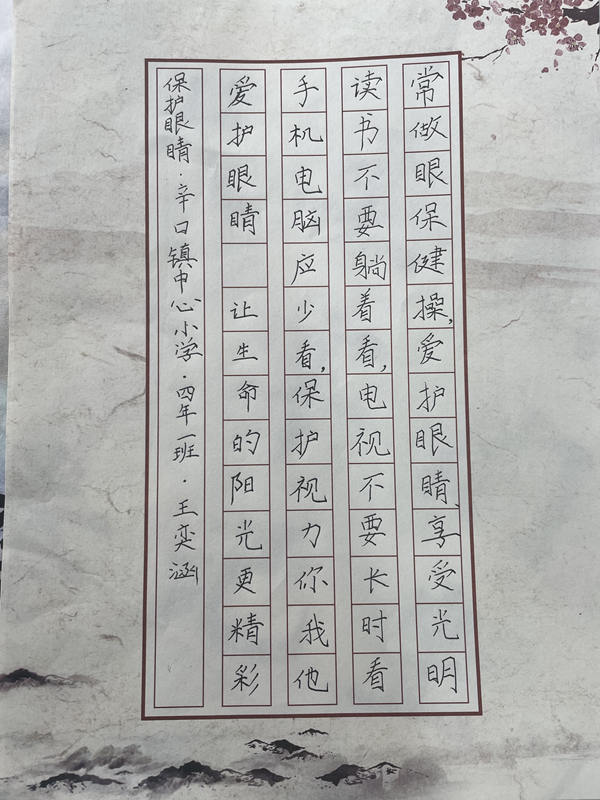 常做眼保健操,爱护眼睛、享受光明
读书不要躺着看,电视不要长时看
手机电脑应少看,保护视力你我他
爱护眼睛 让生命的阳光更精彩
保护眼睛·辛口镇中心小学·四年一班·王奕涵